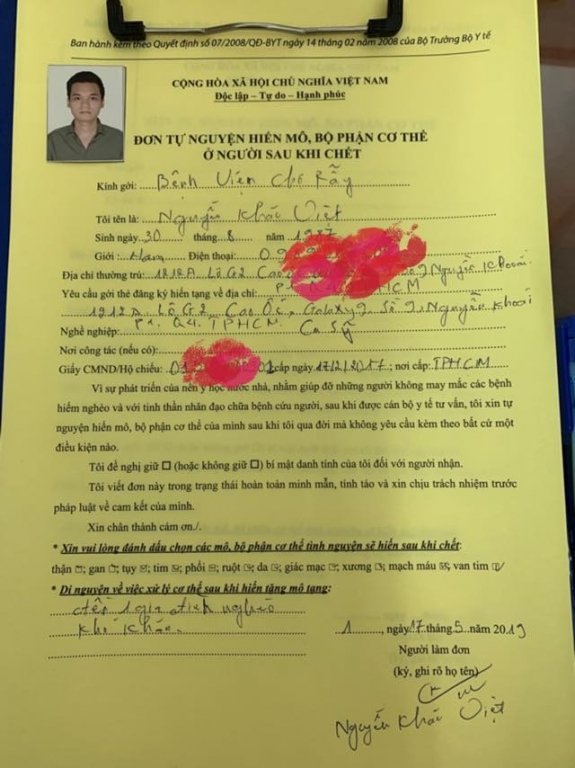 Ban hành kèm theo Quyết định số 07/2008/QĐ-BYT ngày 14 tháng 02 năm 2008 của Bộ Trưởng Bộ Y tế
CỘNG HÒA XÃ HỘI CHỦ NGHĨA VIỆT NAM
Độc lập – Tự do – Hạnh phúc
ĐƠN TỰ NGUYỆN HIẾN MÔ, BỘ PHẬN CƠ THỂ
Ở NGƯỜI SAU KHI CHẾT
Kính gởi: Bệnh Viện Chợ Rẫy
Tôi tên là: Nguyễn Khắc Việt
Sinh ngày 30 tháng 8 năm 1987
Giới: Nam Điện thoại: 0
Địa chỉ thường trú: 1212A Lô G2 Cao Nguyễn Khoái
HCM
Yêu cầu gởi thẻ đăng ký hiến tạng về địa chỉ:
1212A Lô G2 Cao Ốc Galaxy 9, Số 9 Nguyễn Khoái
P1. Q4. TPHCM
Nghề nghiệp: Ca Sỹ
Nơi công tác (nếu có):
Giấy CMND/Hộ chiếu: 01 cấp ngày 17/2/2017; nơi cấp: TPHCM
Vì sự phát triển của nền y học nước nhà, nhằm giúp đỡ những người không may mắc các bệnh
hiểm nghèo và với tinh thần nhân đạo chữa bệnh cứu người, sau khi được cán bộ y tế tư vấn, tôi xin tự
nguyện hiến mô, bộ phận cơ thể của mình sau khi tôi qua đời mà không yêu cầu kèm theo bất cứ một
điều kiện nào.
Tôi đề nghị giữ ☐ (hoặc không giữ ☐) bí mật danh tính của tôi đối với người nhận.
Tôi viết đơn này trong trạng thái hoàn toàn minh mẫn, tỉnh táo và xin chịu trách nhiệm trước
pháp luật về cam kết của mình.
Xin chân thành cảm ơn./.
* Xin vui lòng đánh dấu chọn các mô, bộ phận cơ thể tình nguyện sẽ hiến sau khi chết:
thận ☑; gan ☑; tụy ☑; tim ☑; phổi ☑; ruột ☑; da ☑; giác mạc ☑; xương ☑; mạch máu ☑; van tim ☑
* Di nguyện về việc xử lý cơ thể sau khi hiến tặng mô tạng:
đến 1 gia đình nghèo
khó khăn.
1, ngày 17 tháng 5 năm 2019
Người làm đơn
(ký, ghi rõ họ tên)
Nguyễn Khắc Việt